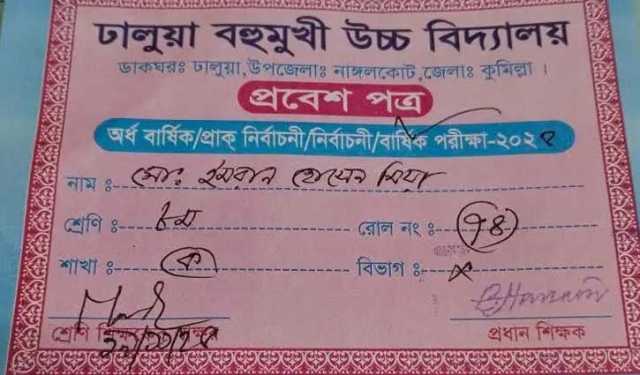 ঢালুয়া বহুমুখী উচ্চ বিদ্যালয়
ডাকঘরঃ ঢালুয়া,উপজেলাঃ নাঙ্গলকোট,জেলাঃ কুমিল্লা ।
প্রবেশ পত্র
অর্ধ বার্ষিক/প্রাক্ নির্বাচনী/নির্বাচনী/বার্ষিক পরীক্ষা-২০২
নাম ঃ মোঃ ইমরান হোসেন মিয়া
শ্রেণি ঃ ৮ম রোল নং ঃ ৭৪
শাখা ঃ ক বিভাগ ঃ x
শ্রেণি শিক্ষক প্রধান শিক্ষক